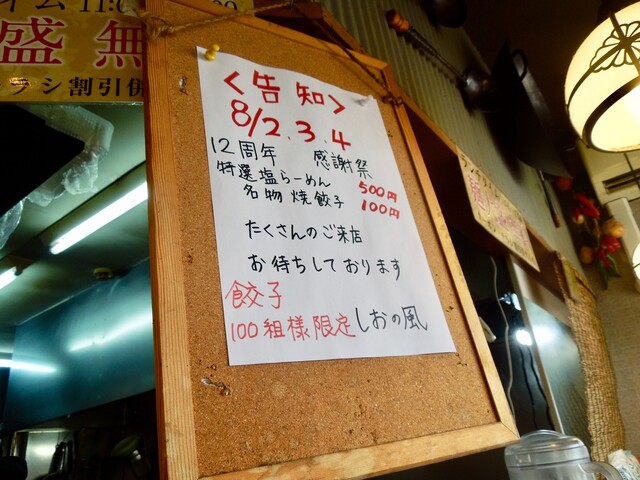 イム 11:0
盛無
ラシ割引併
<告知>
8/2.3.4
12周年 感謝祭
特選塩らーめん 500円
名物 焼餃子 100円
たくさんのご来店
お待ちしております
餃子
100組様限定 しおの風